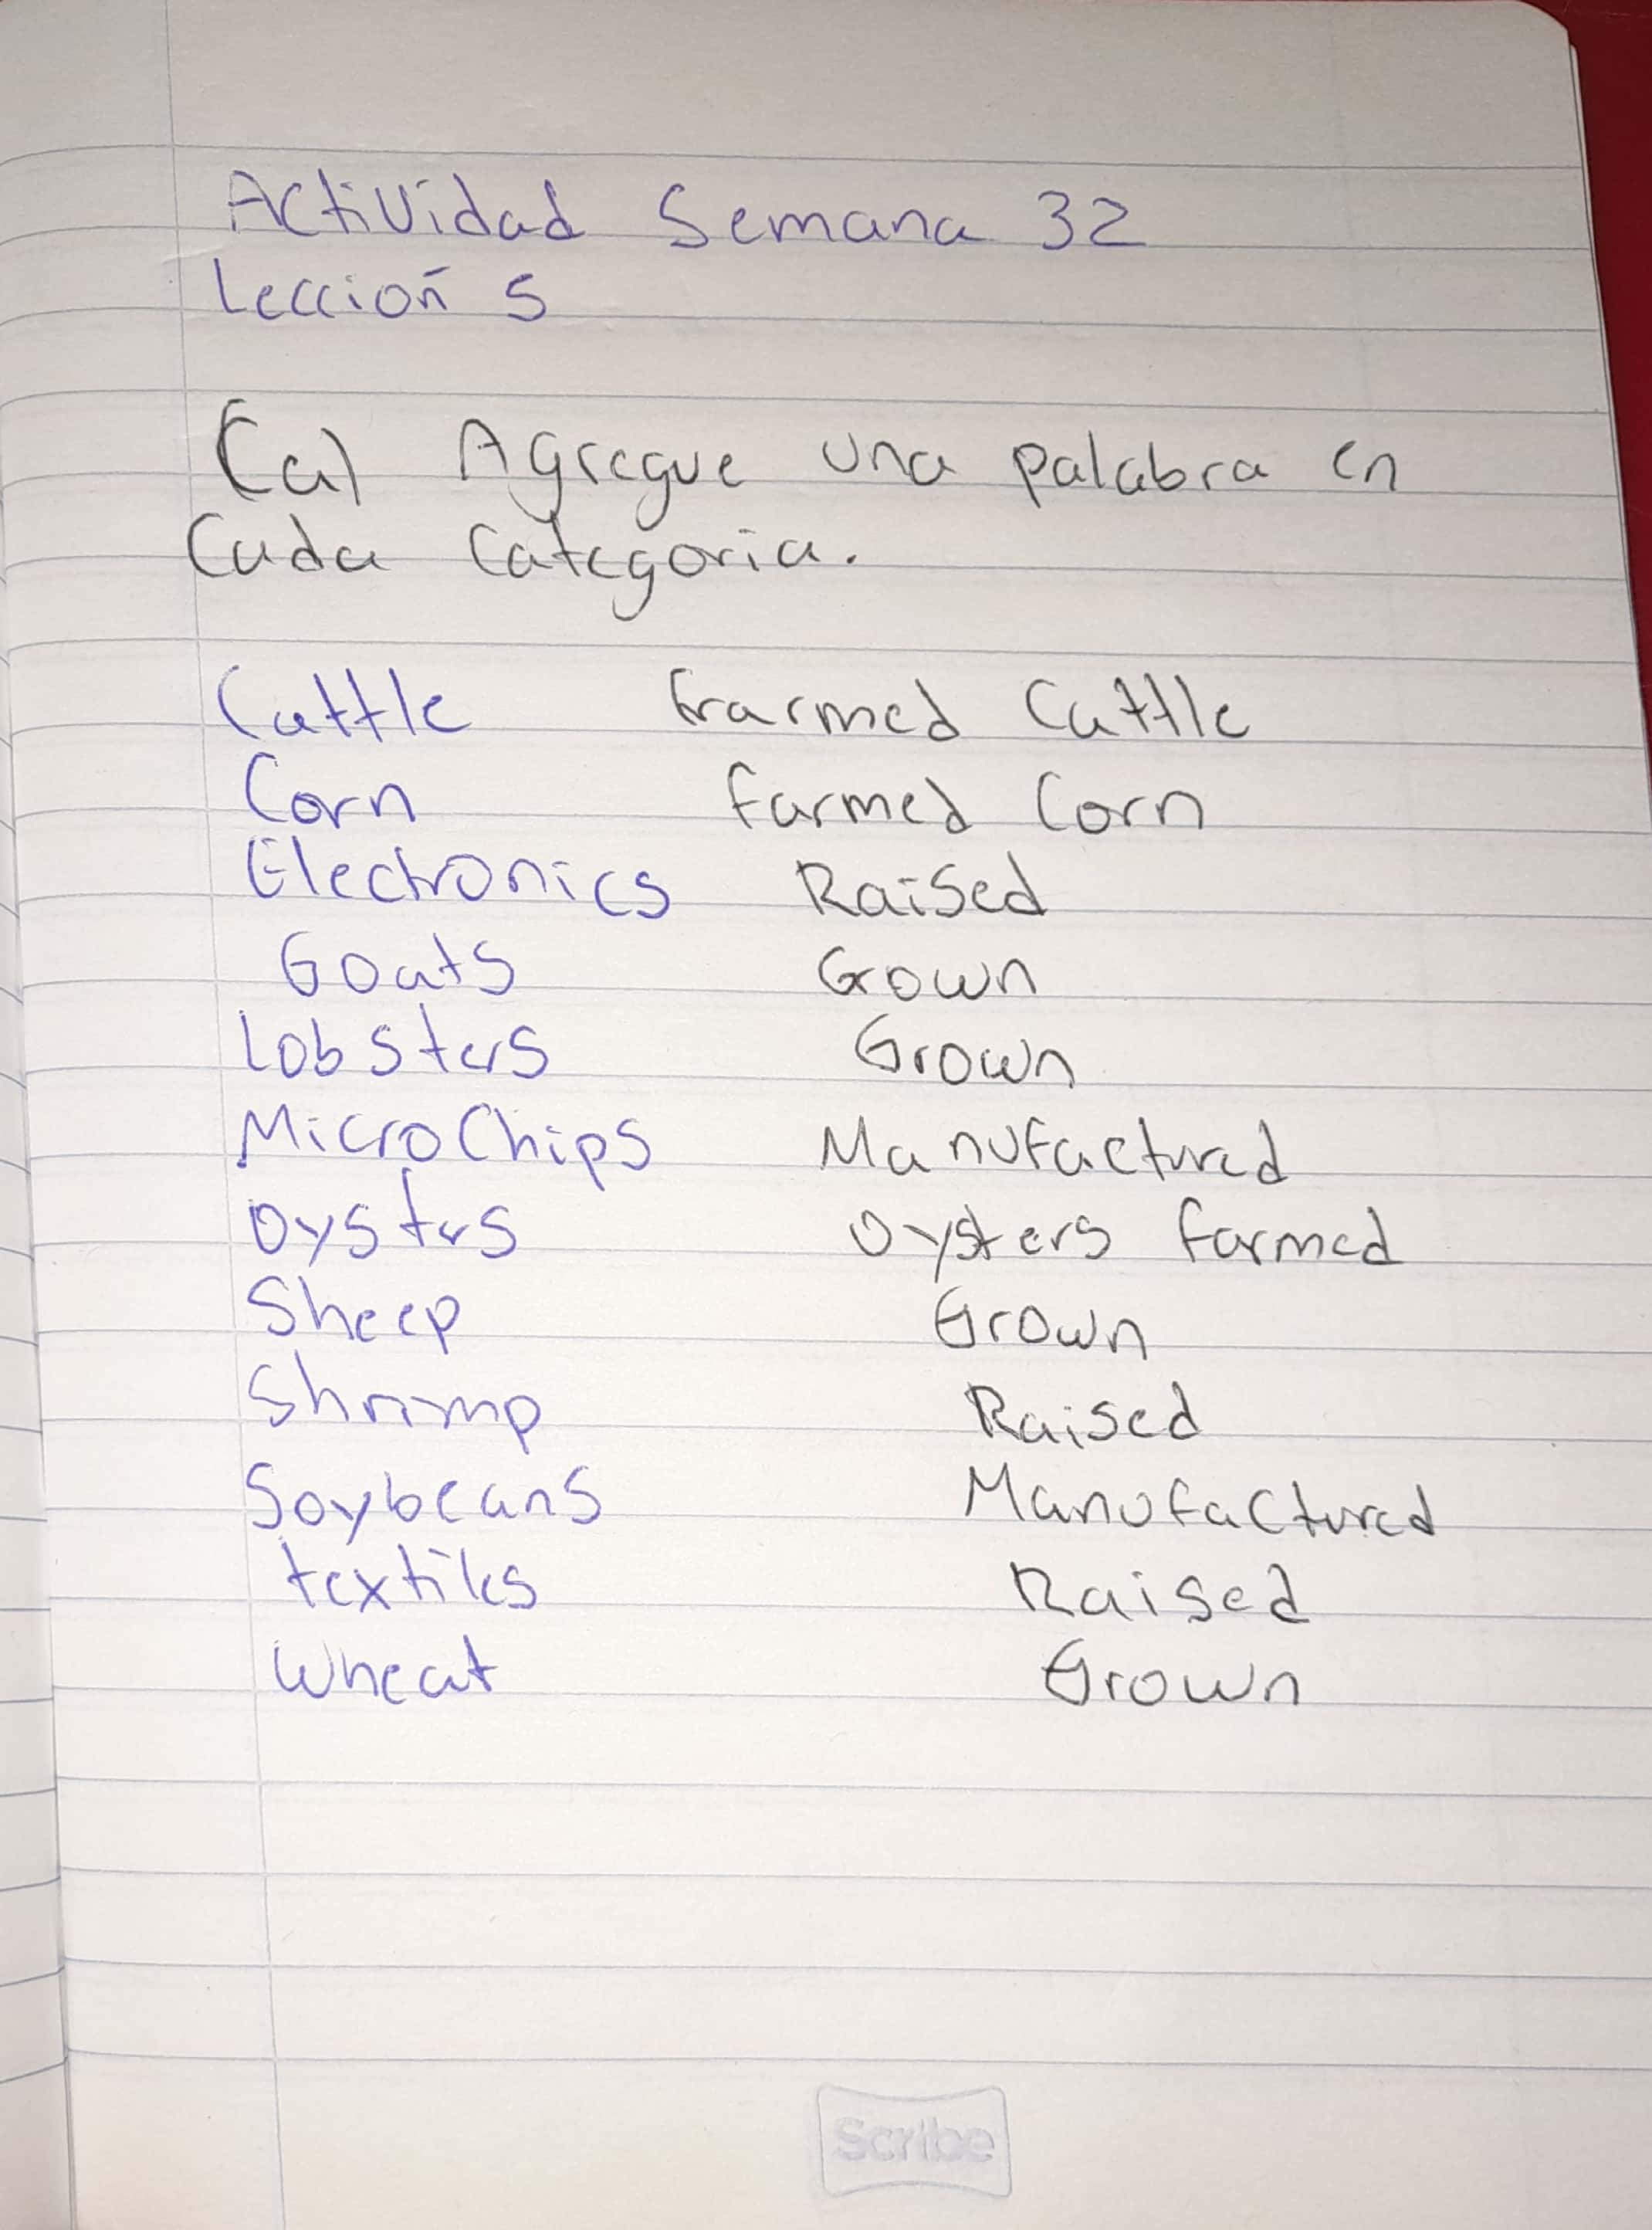 Actividad Semana 32
Lección 5
(a) Agregue una palabra en
Cada Categoria.
Cattle Frarmed Cattle
Corn farmed Corn
Electronics Raised
Goats Grown
Lobsters Grown
MicroChips Manufactured
Oysters Oysters farmed
Sheep Grown
Shrimp Raised
Soybeans Manufactured
textiles Raised
Wheat Grown
Scribe